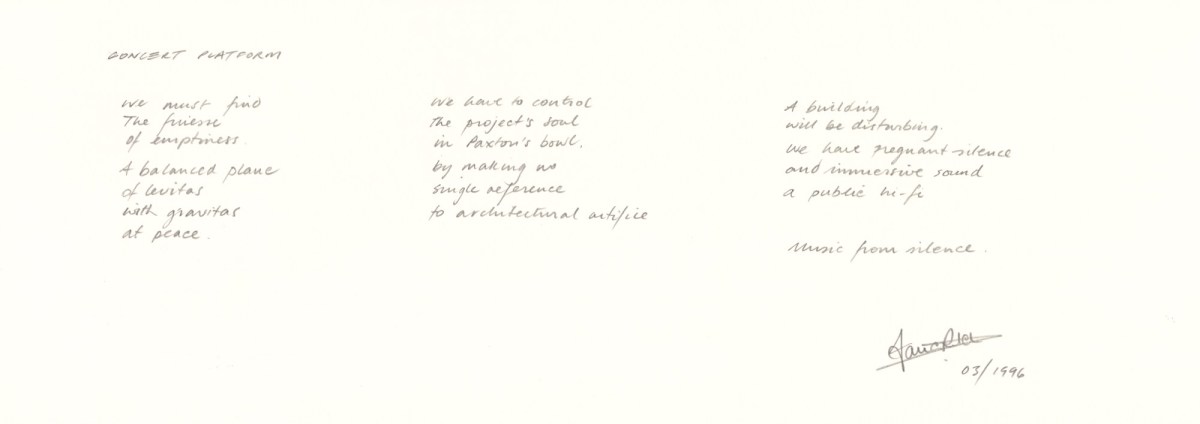 CONCERT PLATFORM
We must find
The finesse
of emptiness.
A balanced plane
of levitas
with gravitas
at peace.
We have to control
the project's soul
in Paxton's bowl.
by making no
single reference
to architectural artifice
A building
will be disturbing.
We have pregnant silence
and immersive sound
a public hi-fi
Music from silence.
03/1996